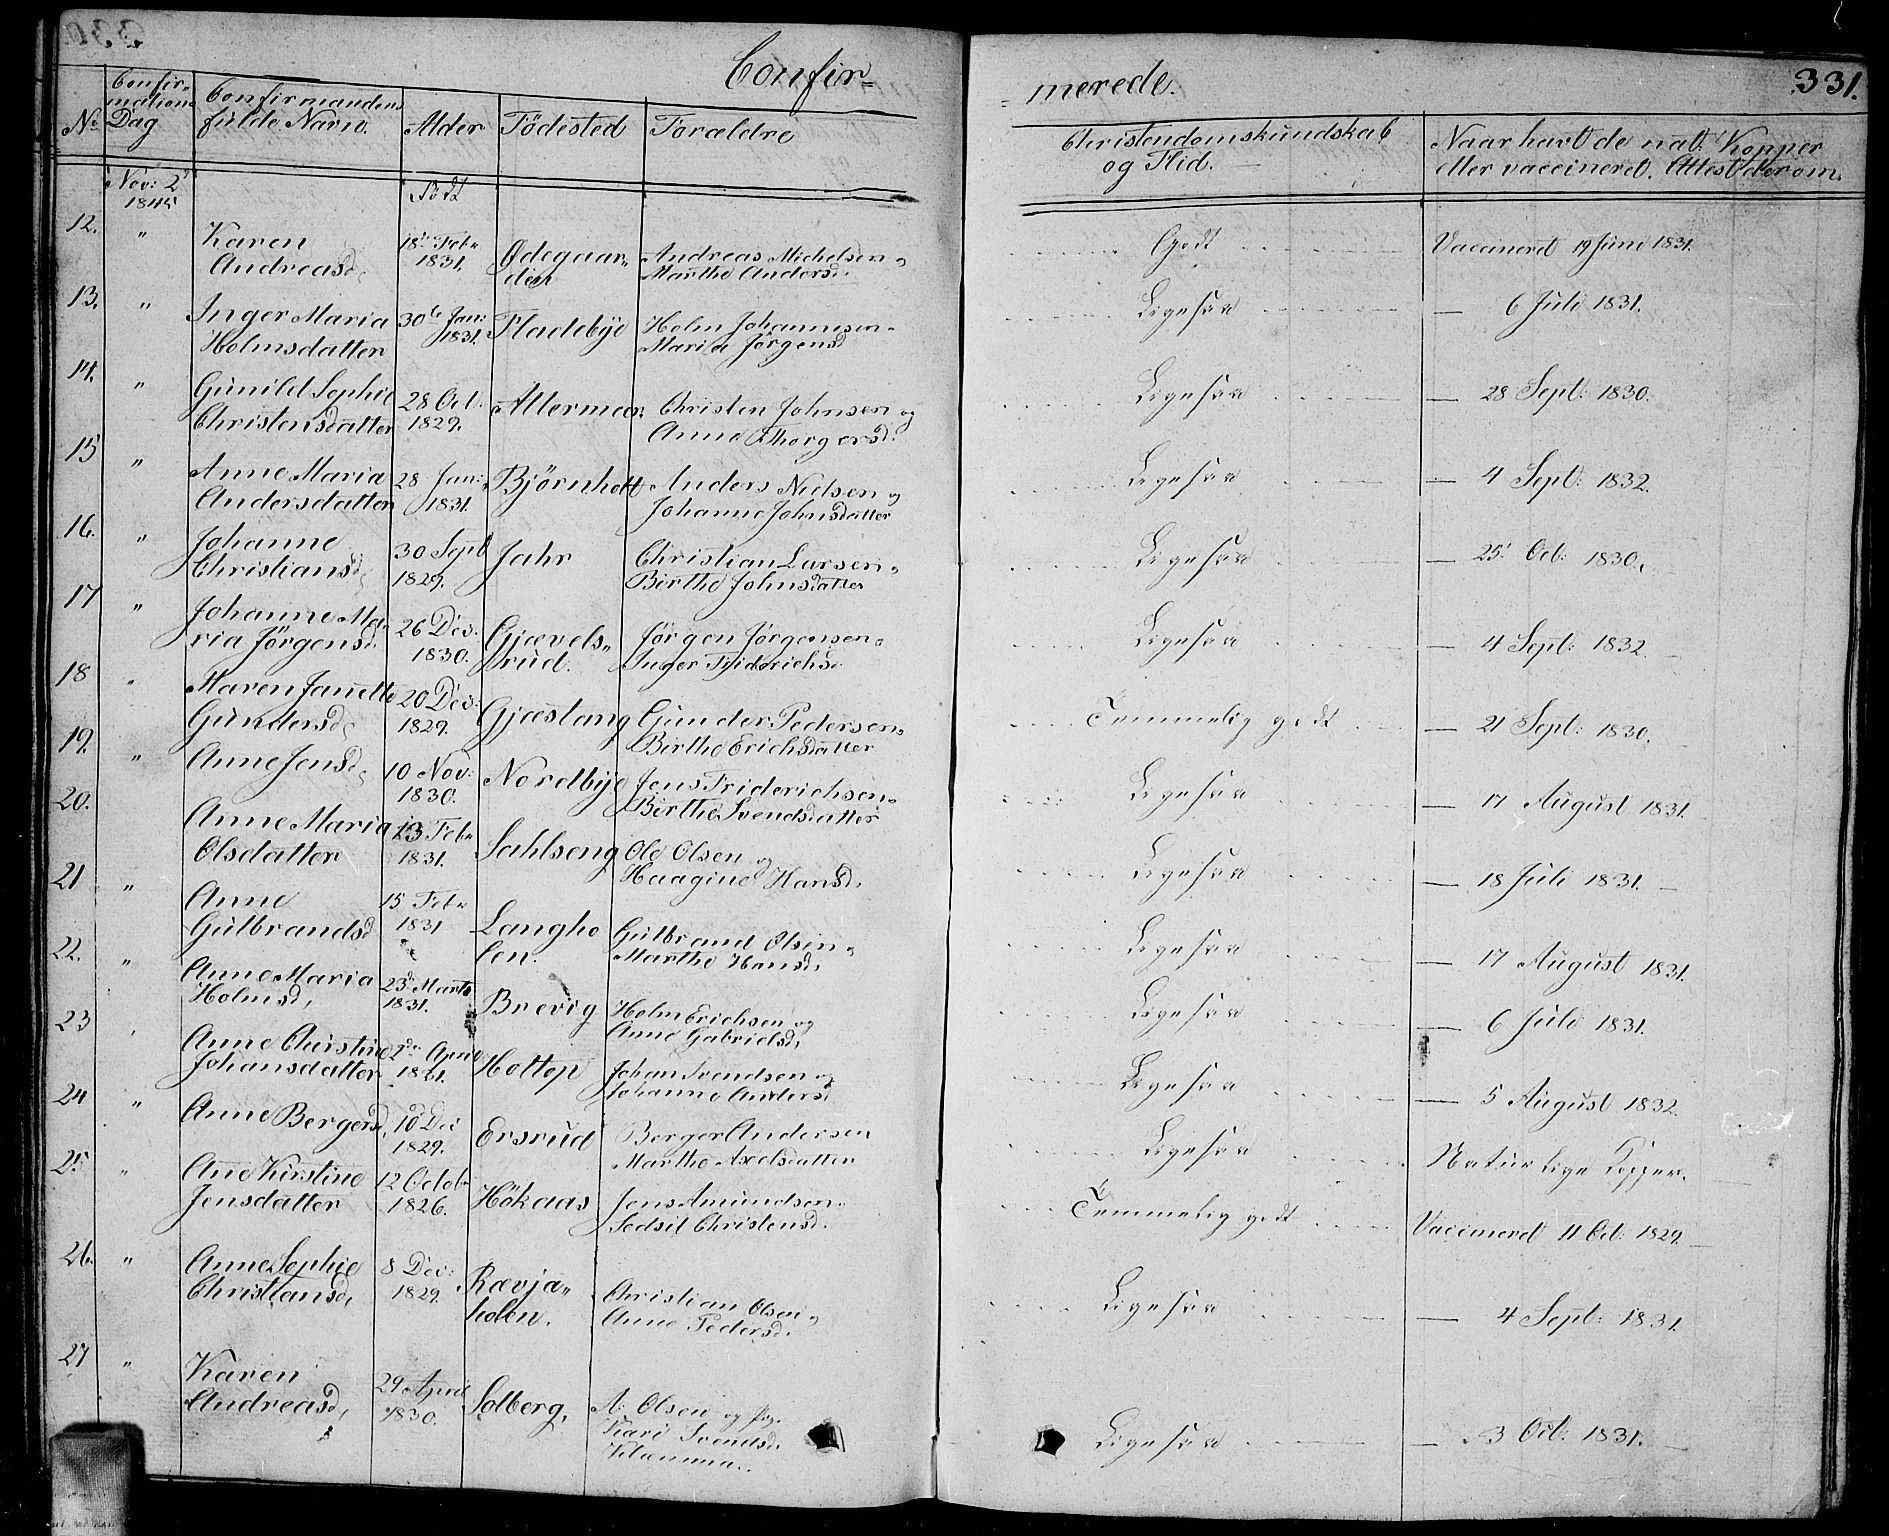 Confir=
= merede.
331.
No
Confir=
mations
Dag
Confirmandens
fulde Navn.
Alder
Födested
Forældre
Christendomskundskab
og Flid.
Naar havt de nat: Kopper
eller vaccineret. Attest derom.
Nov: 2
1845
Födt
12. " Karen Andreasd, 18 Febr 1831. Ødegaarden Andreas Michelsen " Marthe Andersd. Godt Vaccineret 19 Juni 1831.
13. " Inger Maria Holmsdatter 30te Jan: 1831. Fladebÿe Holm Johannesen " Maria Jörgensd Ligesaa — 6 Juli 1831.
14. " Gunild Sophie Christensdatter 28 Oct. 1829. Attermar. Christen Johnsen og Anne Thorgersd. Ligesaa — 28 Sept: 1830.
15 " Anne Maria Andersdatter 28 Jan: 1831. Björnholt Anders Nielsen og Johanne Johnsdatter Ligesaa — 4 Sept: 1832.
16. " Johanne Christiansd, 30 Sept 1829. Jahr Christian Larsen " Birthe Johnsdatter Ligesaa — 25 Oct: 1830.
17 " Johanne Maria Jørgensd. 26 Dec. 1830. Gjævelsrud. Jørgen Jørgensen " Inger Friderichsd. Ligesaa — 4 Sept: 1832
18 " Maren Janette Gundersd, 20 Dec: 1829. Gjæstang Gunder Pedersen " Birthe Erichsdatter Temmelig godt — 21 Sept: 1830.
19. " Anne Jensd, 10 Nov: 1830. Nordbÿe Jens Friderichsen " Birthe Svendsdatter Ligesaa — 17 August 1831.
20. Anne Maria Olsdatter 13 Febr 1831. Sahlseng Ole Olsen og Haagine Hansd, Ligesaa — 18 Juli 1831.
21 " Anne Gulbrandsd 15 Febr 1831 Langholen. Gulbrand Olsen " Marthe Hansd, Ligesaa — 17 August 1831.
22. " Anne Maria Holmsd, 23 Marts 1831. Brevig Holm Erichsen og Anne Gabrielsd, Ligesaa — 6 Juli 1831.
23 " Anne Christine Johansdatter 2den April 1831. Holtop Johan Svendsen og Johanne Andersd Ligesaa — 5 August 1832.
24 " Anne Bergersd, 10 Dec 1829. Ersrud Berger Andersen Marthe Axelsdatter Ligesaa Naturlige Kopper.
25. " Ane Kirstine Jensdatter 12 Octobr 1826. Hökaas Jens Amundsen " Sedsil Christensd. Temmelig godt Vaccineret 11 Oct: 1829.
26. " Anne Sophie Christiansd, 8 Dec: 1829. Rævjaholen. Christian Olsen " Anne Pedersd. Ligesaa — 4 Sept: 1831.
27 " Karen Andreasd, 29 April 1830. Solberg, A: Olsen og Kari Svendsd. Ligesaa — 3 Oct: 1831.